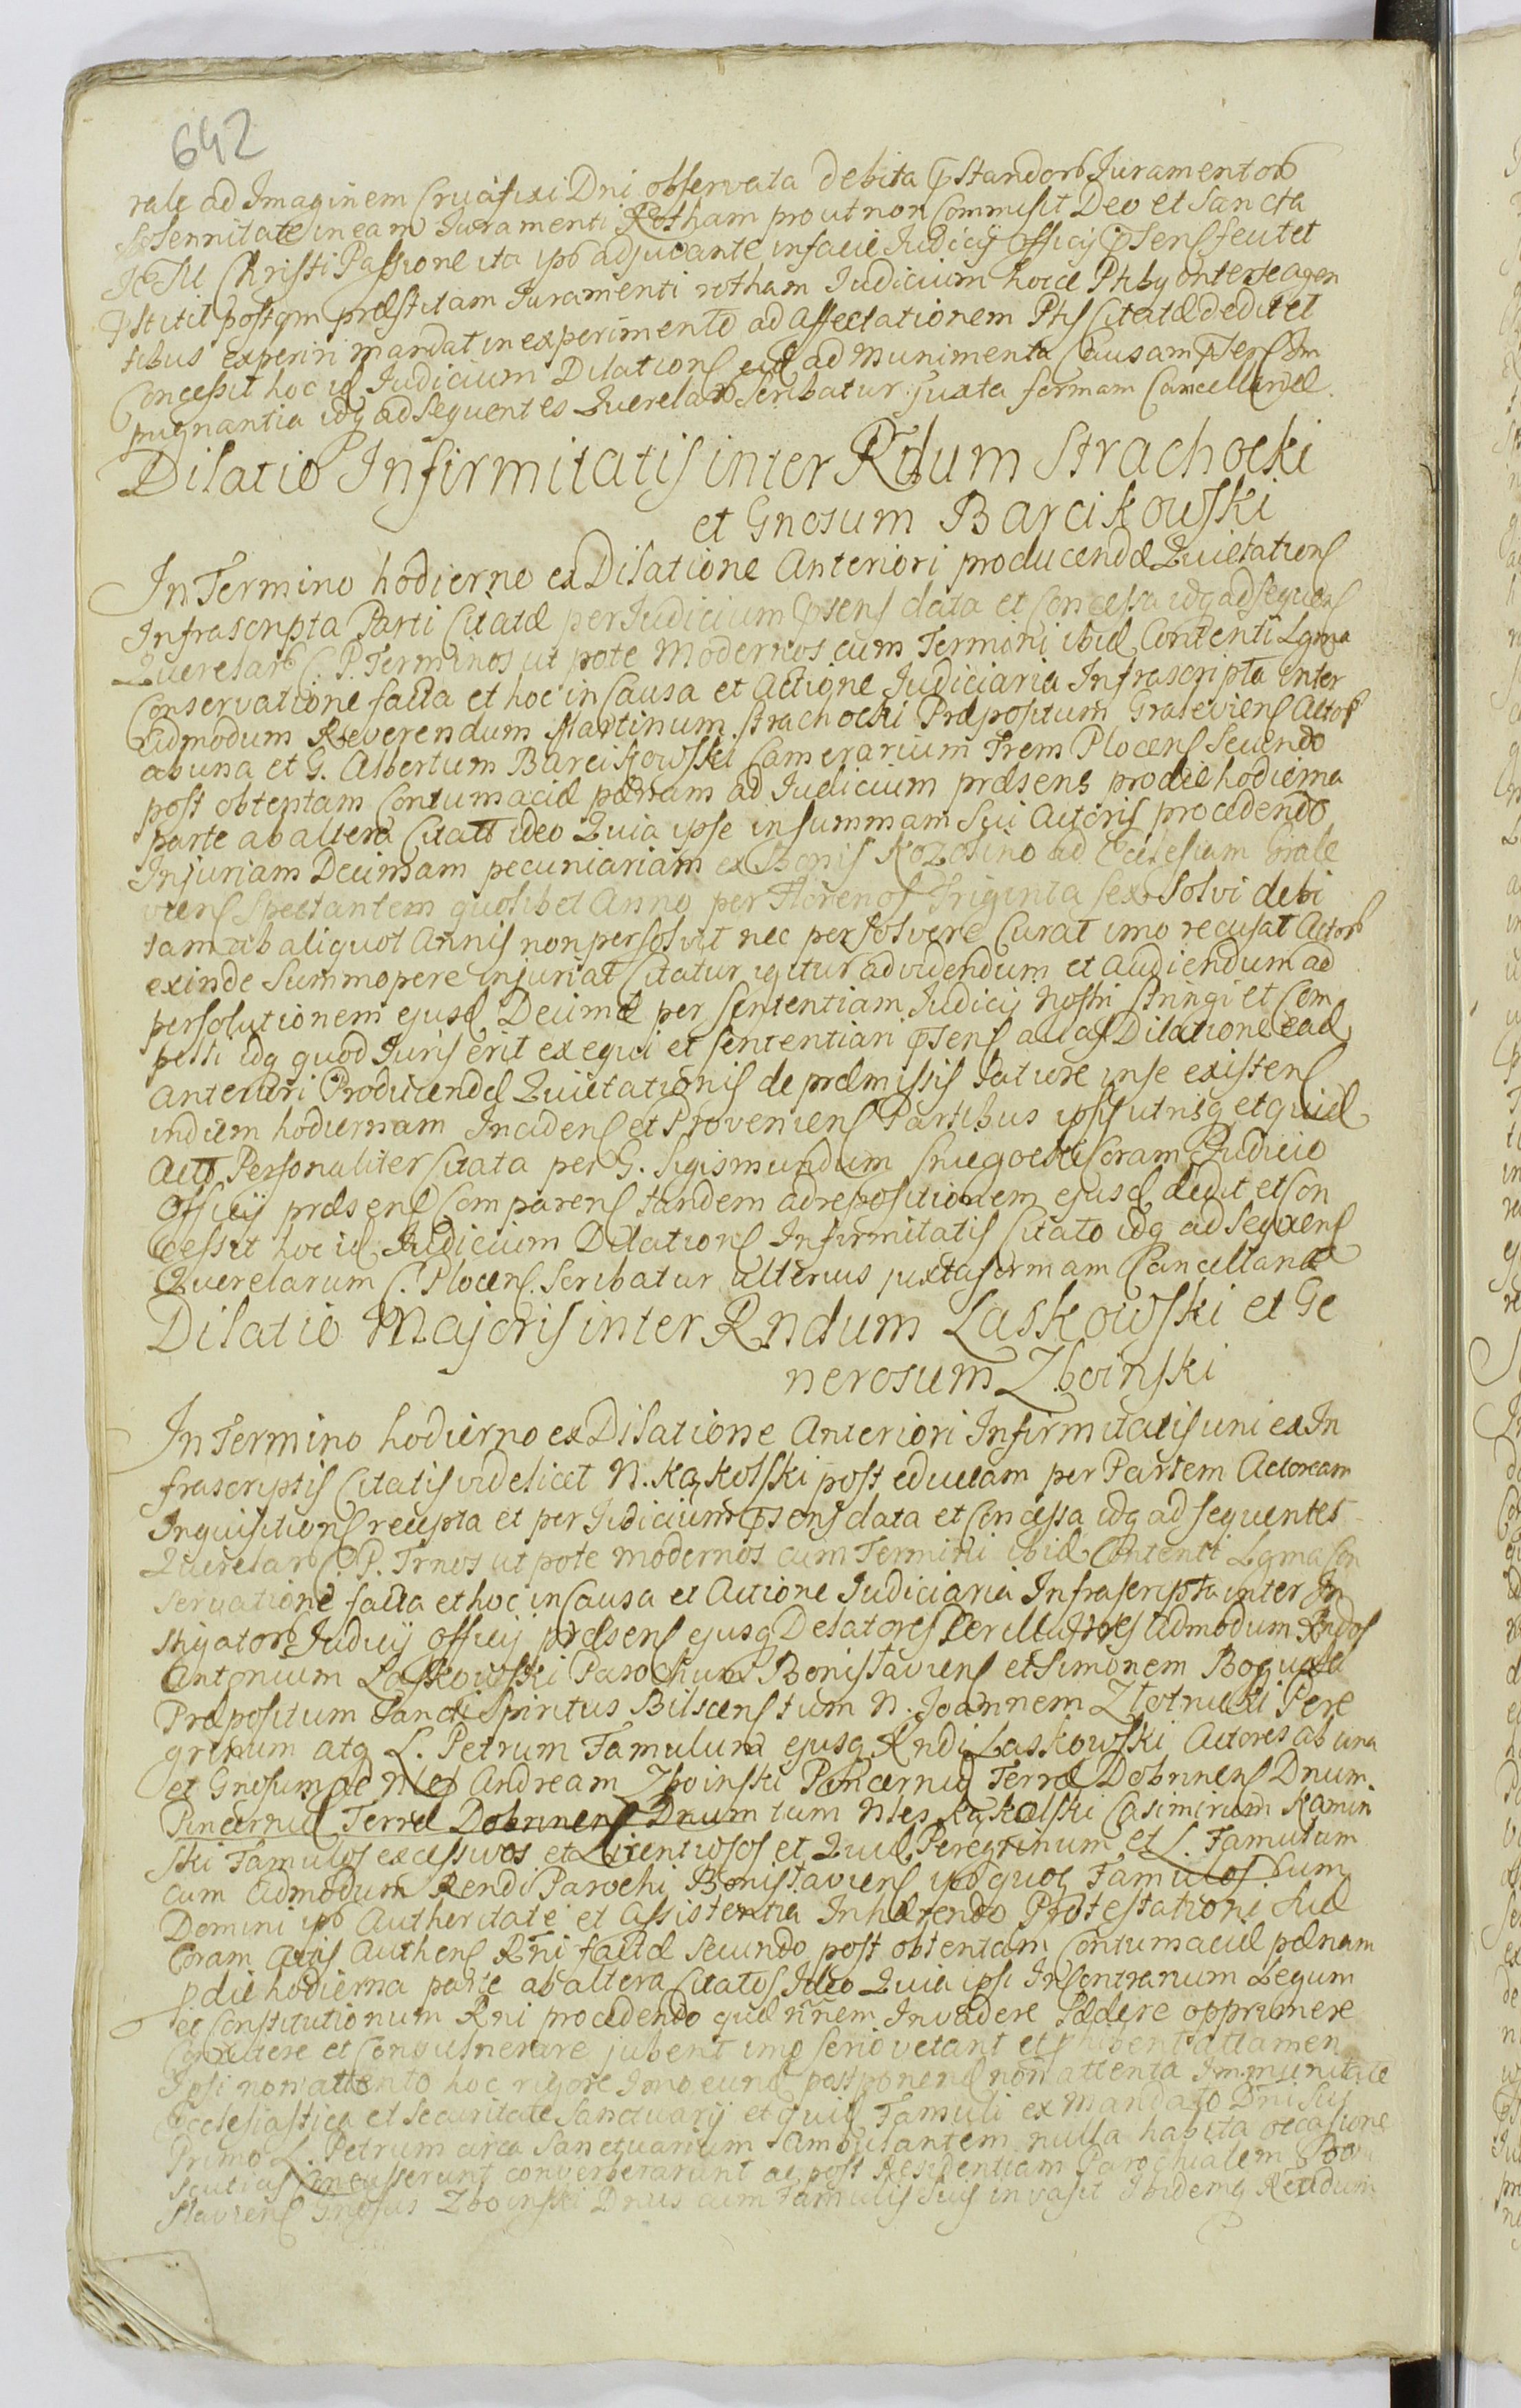 642
rale ad Imaginem Crucifixi Dni observata debita pstandorb Juramentorb
Solennitate in eam Juramenti Rotham prout non Commisit Deo et Sancta
JESU Christi Passione ita ipō adjuvante in facie Judicij Officij psens feutet
pstitit postqm præstitam Juramenti rotham Judicium hocce Ptibus inter se agen
tibus experiri mandat in experimento ad affectationem Ptis Citatæ dedit et
Concessit hoc id Judicium Dilations eid ad munimenta Causam psens Im
pugnantia idq ad sequentes Querelarb Scribatur juxta formam Cancellariæ.
Dilatio Infirmitatis inter Rdum Strachocki
et Gnosum Barcikowski
In Termino hodierno ex Dilatione Anteriori producendæ Quietations
Infrascripta Parti Citatæ per Judicium psens data et Concessa idq ad sequens
Querelarb C. P. Terminos ut pote Modernos cum Termini ibid Contenti Lgma
Conservatione facta et hoc in Causa et Actione Judiciaria Infrascripta inter
Admodum Reverendum Martinum Strachocki Præpositum Graleviens Actor
ab una et G. Albertum Barcikowski Camerarium Trem Plocens Secundo
post obtentam Contumaciæ pænam ad Judicium præsens pro die hodierna
parte ab altera Citatt ideo Quia ipse in summam Sui Actoris procedendo
Injuriam Decimam pecuniariam ex Bonis Kozolino ad Ecclesiam Grale
viens Spectantem quolibet Anno per Florenos Triginta sex Solvi debi
tam ab aliquot Annis non persolvit nec persolvere Curat imo recusat Actorb
exinde Summopere injuriat Citatur igitur ad videndum et audiendum ad
persolutionem ejusd Decimæ per Sententiam Judicij Nostri Stringi et Com
pelli idq quod Juris erit exequi et Sententiari psens ac ex Dilatione ead
Anteriori Producendæ Quietationis de præmissis Latiore in se existens
in diem hodiernam Incidens et Proveniens Partibus ipsis utrisq et quid
Actt Personaliter Citata per G. Sigismundum Coram Judicio
Officij præsens Comparens tandem ad repositionem ejusd dedit et Con
cessit hoc id Judicium Dilations Infirmitatis Citato idq ad Sequens
Querelarum C. Plocens. Scribatur ulterius juxta formam Cancellariæ
Dilatio Majoris inter Rndum Laskowski et Ge
nerosum Zboinski
In Termino hodierno ex Dilatione Anteriori Infirmitatis uni ex In
frascriptis Citatis videlicet N. Kąkolski post eductam per Partem Actoream
Inquisitions recepta et per Judicium psens data et Concessa idq ad sequentes
Querelarb C. P. Trnos ut pote modernos cum Termini ibid Contenti Lgma Con
servatione facta et hoc in Causa et Actione Judiciaria Infrascripta inter In
stigatorb Judicij officij præsens ejusq Delatores Perillustres Admodum Rndos
Antonium Laskowski Parochum Bonislaviens et Simonem
Præpositum Sancti Spiritus Bilscens tum N. Joannem Zlotnicki Pere
grinum atq L. Petrum Famulum ejusq Rndi Laskowski Actores ab una
et Gnosum ac Andream Zboinski Pincernid Terræ Dobrinens Dnum.
Pincernid Terræ Dobrinens Dnum tum Nles Kąkolski Casimirum Kamin
ski Famulos excessivos et Licentiosos et Quid Peregrinum et L. Famulum
cum Admodum Rendi Parochi Bonislaviens ipō quoq Famulos Sum
Domini ipō Authoritate et Assistentia Inhærendo Protestationi Suæ
Coram Actis Authens Rni factæ Secundo post obtentam Contumaciæ pænam
p die hodierna parte ab altera Citatos Ideo Quia ipsi In Contrarium Legum
et Constitutionum Rni procedendo quæ nnem Invadere Lædere opprimere
et Convulnerare jubent imo serio vetant et phibent attamen
Ipsi non attento hoc rigore Imo eund postponend non attenta Immunitate
Ecclesiastica et Securitate Sanctuarij et quid Famuli ex Mandato Dni Sui
Primo L. Petrum circa Sanctuarium Ambulantem nulla habita occasione
Scuticis Concusserunt converberarunt ac post Residentiam Parochialem Boni
slaviens Gnosus Zboinski Dnus cum Famulis Suis invasit Ibidemq Rendum